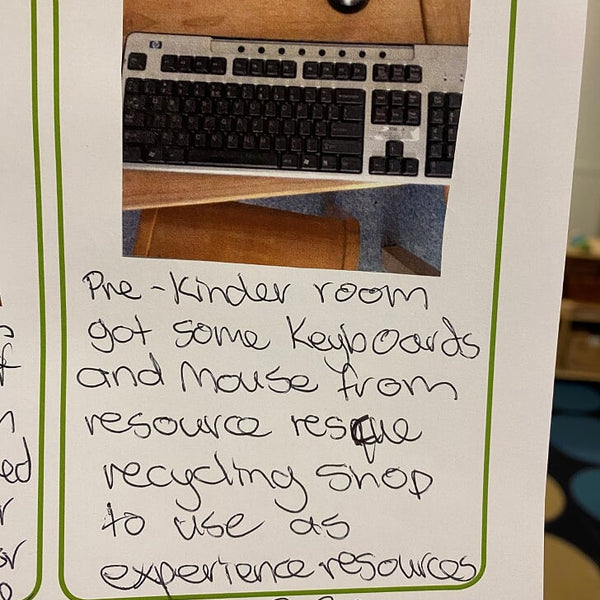 hp
Pre-Kinder room
got some Keyboards
and Mouse from
resource resque
recycling shop
to use as
experience resources